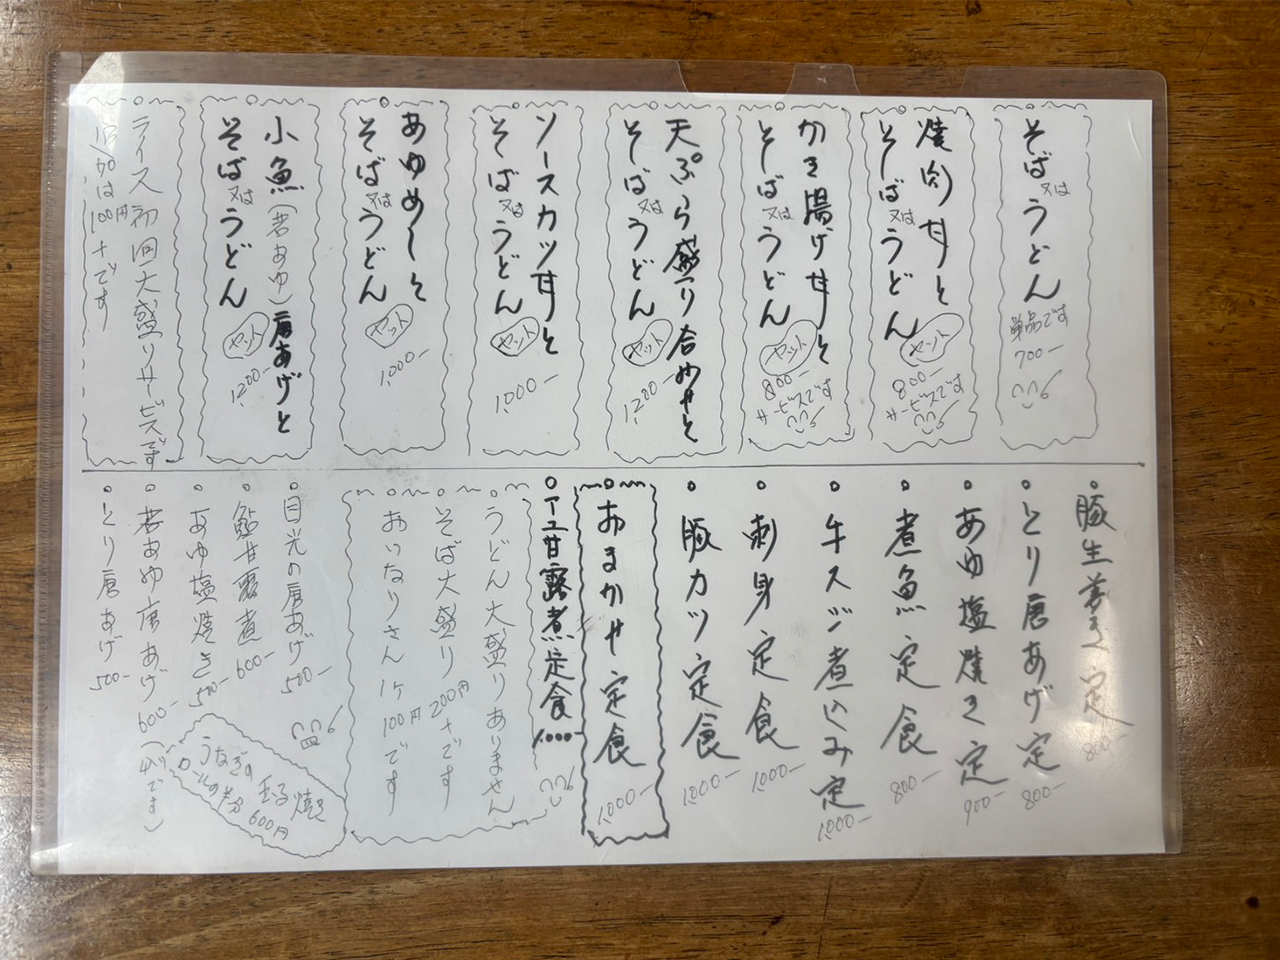 そば又はうどん
単品です
700-
焼肉丼と
そば又はうどん
セット
800-
サービスです
かき揚げ丼と
そば又はうどん
セット
800-
サービスです
天ぷら盛り合わせと
そば又はうどん
セット
1200-
ソースカツ丼と
そば又はうどん
セット
1,000-
あゆめしと
そば又はうどん
セット
1,000-
小魚(若あゆ)唐あげと
そば又はうどん
セット
1,200-
ライス初回大盛りサービスです
100円+です
豚生姜
定
800-
とり唐あげ定
800-
あゆ塩焼き定
900-
煮魚定食
800-
牛スジ煮込み定
1,000-
刺身定食
1,000-
豚カツ定食
1,000-
おまかせ定食
1,000-
アユ甘露煮定食
うどん大盛りありません
そば大盛り200円+です
おいなりさん1ケ100円です
目光の唐あげ
500-
鮎甘露煮
600-
あゆ塩焼き
500-
若あゆ唐あげ
600-
とり唐あげ
500-
うなぎの玉子焼
ロールの半分600円